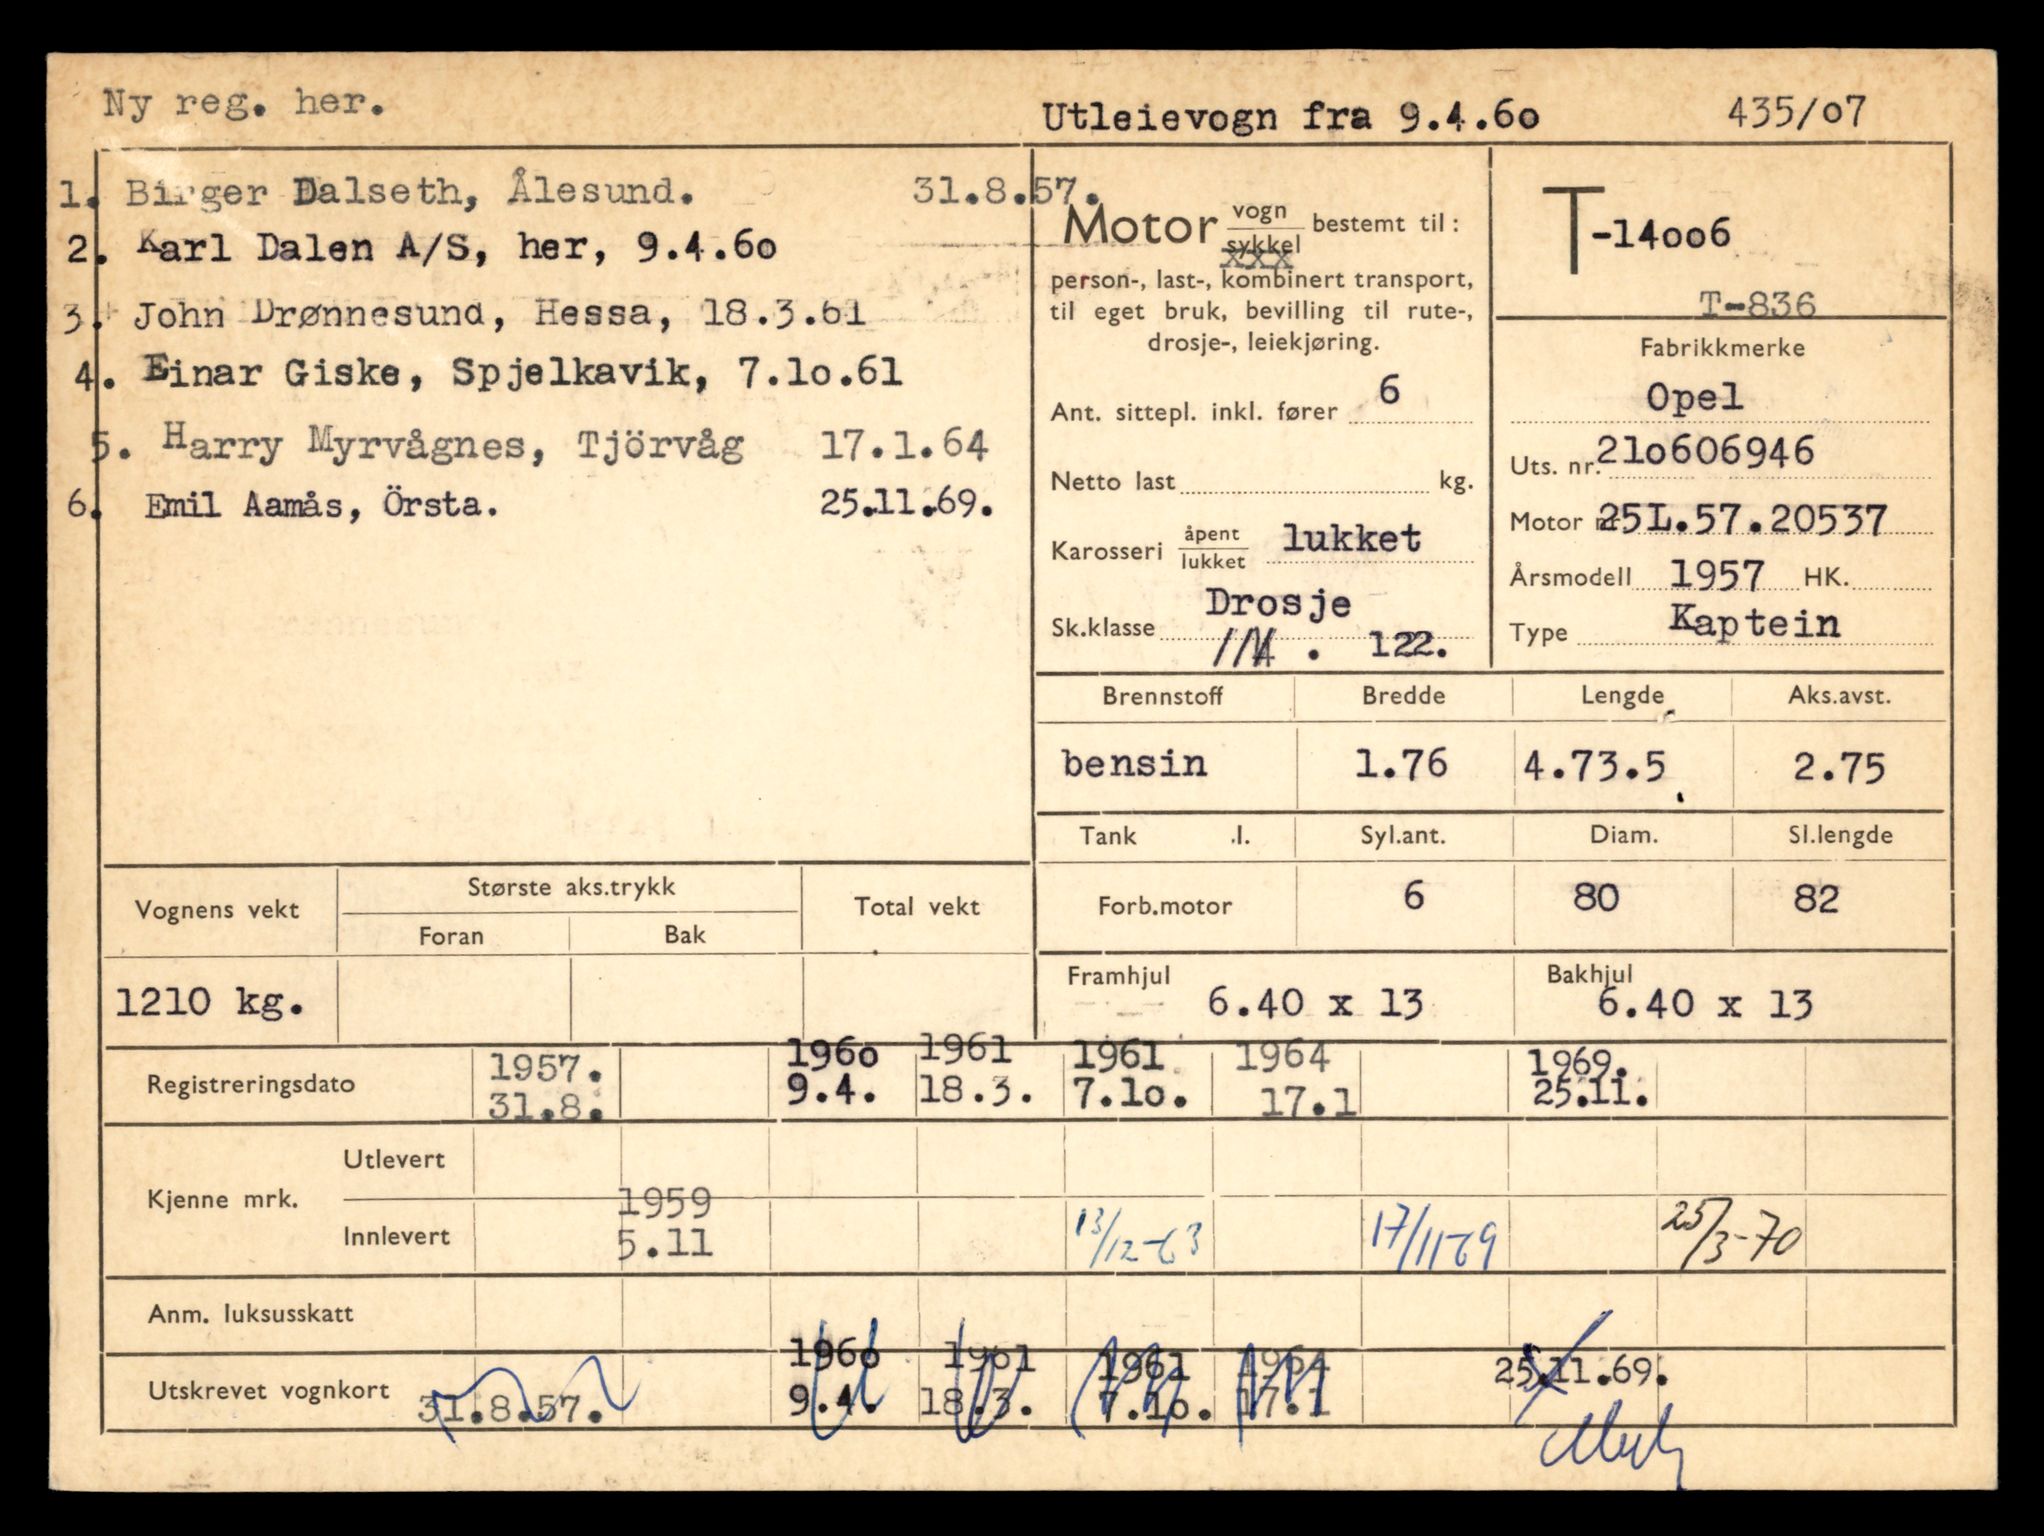 Ny reg. her.
Utleievogn fra 9.4.6o
435/o7
1. Birger Dalseth, Ålesund. 31.8.57.
2. Karl Dalen A/S, her, 9.4.6o
3. John Drønnesund, Hessa, 18.3.61
4. Einar Giske, Spjelkavik, 7.lo.61
5. Harry Myrvågnes, Tjörvåg 17.1.64
6. Emil Aamås, Örsta. 25.11.69.
Motor vogn sykkel bestemt til:
person-, last-, kombinert transport,
til eget bruk, bevilling til rute-,
drosje-, leiekjøring.
Ant. sittepl. inkl. fører 6
Netto last kg.
Karosseri åpent lukket lukket
Sk.klasse Drosje
122.
T-14oo6
T-836
Fabrikkmerke
Opel
Uts. nr. 21o606946
Motor nr 25L.57.20537
Årsmodell 1957 HK.
Type Kaptein
Brennstoff Bredde Lengde Aks.avst.
bensin 1.76 4.73.5 2.75
Tank .l. Syl.ant. Diam. Sl.lengde
Forb.motor 6 80 82
Framhjul 6.40 x 13
Bakhjul 6.40 x 13
Vognens vekt Største aks.trykk Total vekt
Foran Bak
1210 kg.
Registreringsdato
1957. 196o 1961 1961 1964 1969.
31.8. 9.4. 18.3. 7.lo. 17.1 25.11.
Kjenne mrk.
Utlevert
Innlevert
1959
5.11
13/12-63 17/11-69 25/3-70
Anm. luksusskatt
Utskrevet vognkort
196o 1961 1961 1964 25.11.69.
31.8.57. 9.4. 18.3. 7.lo. 17.1